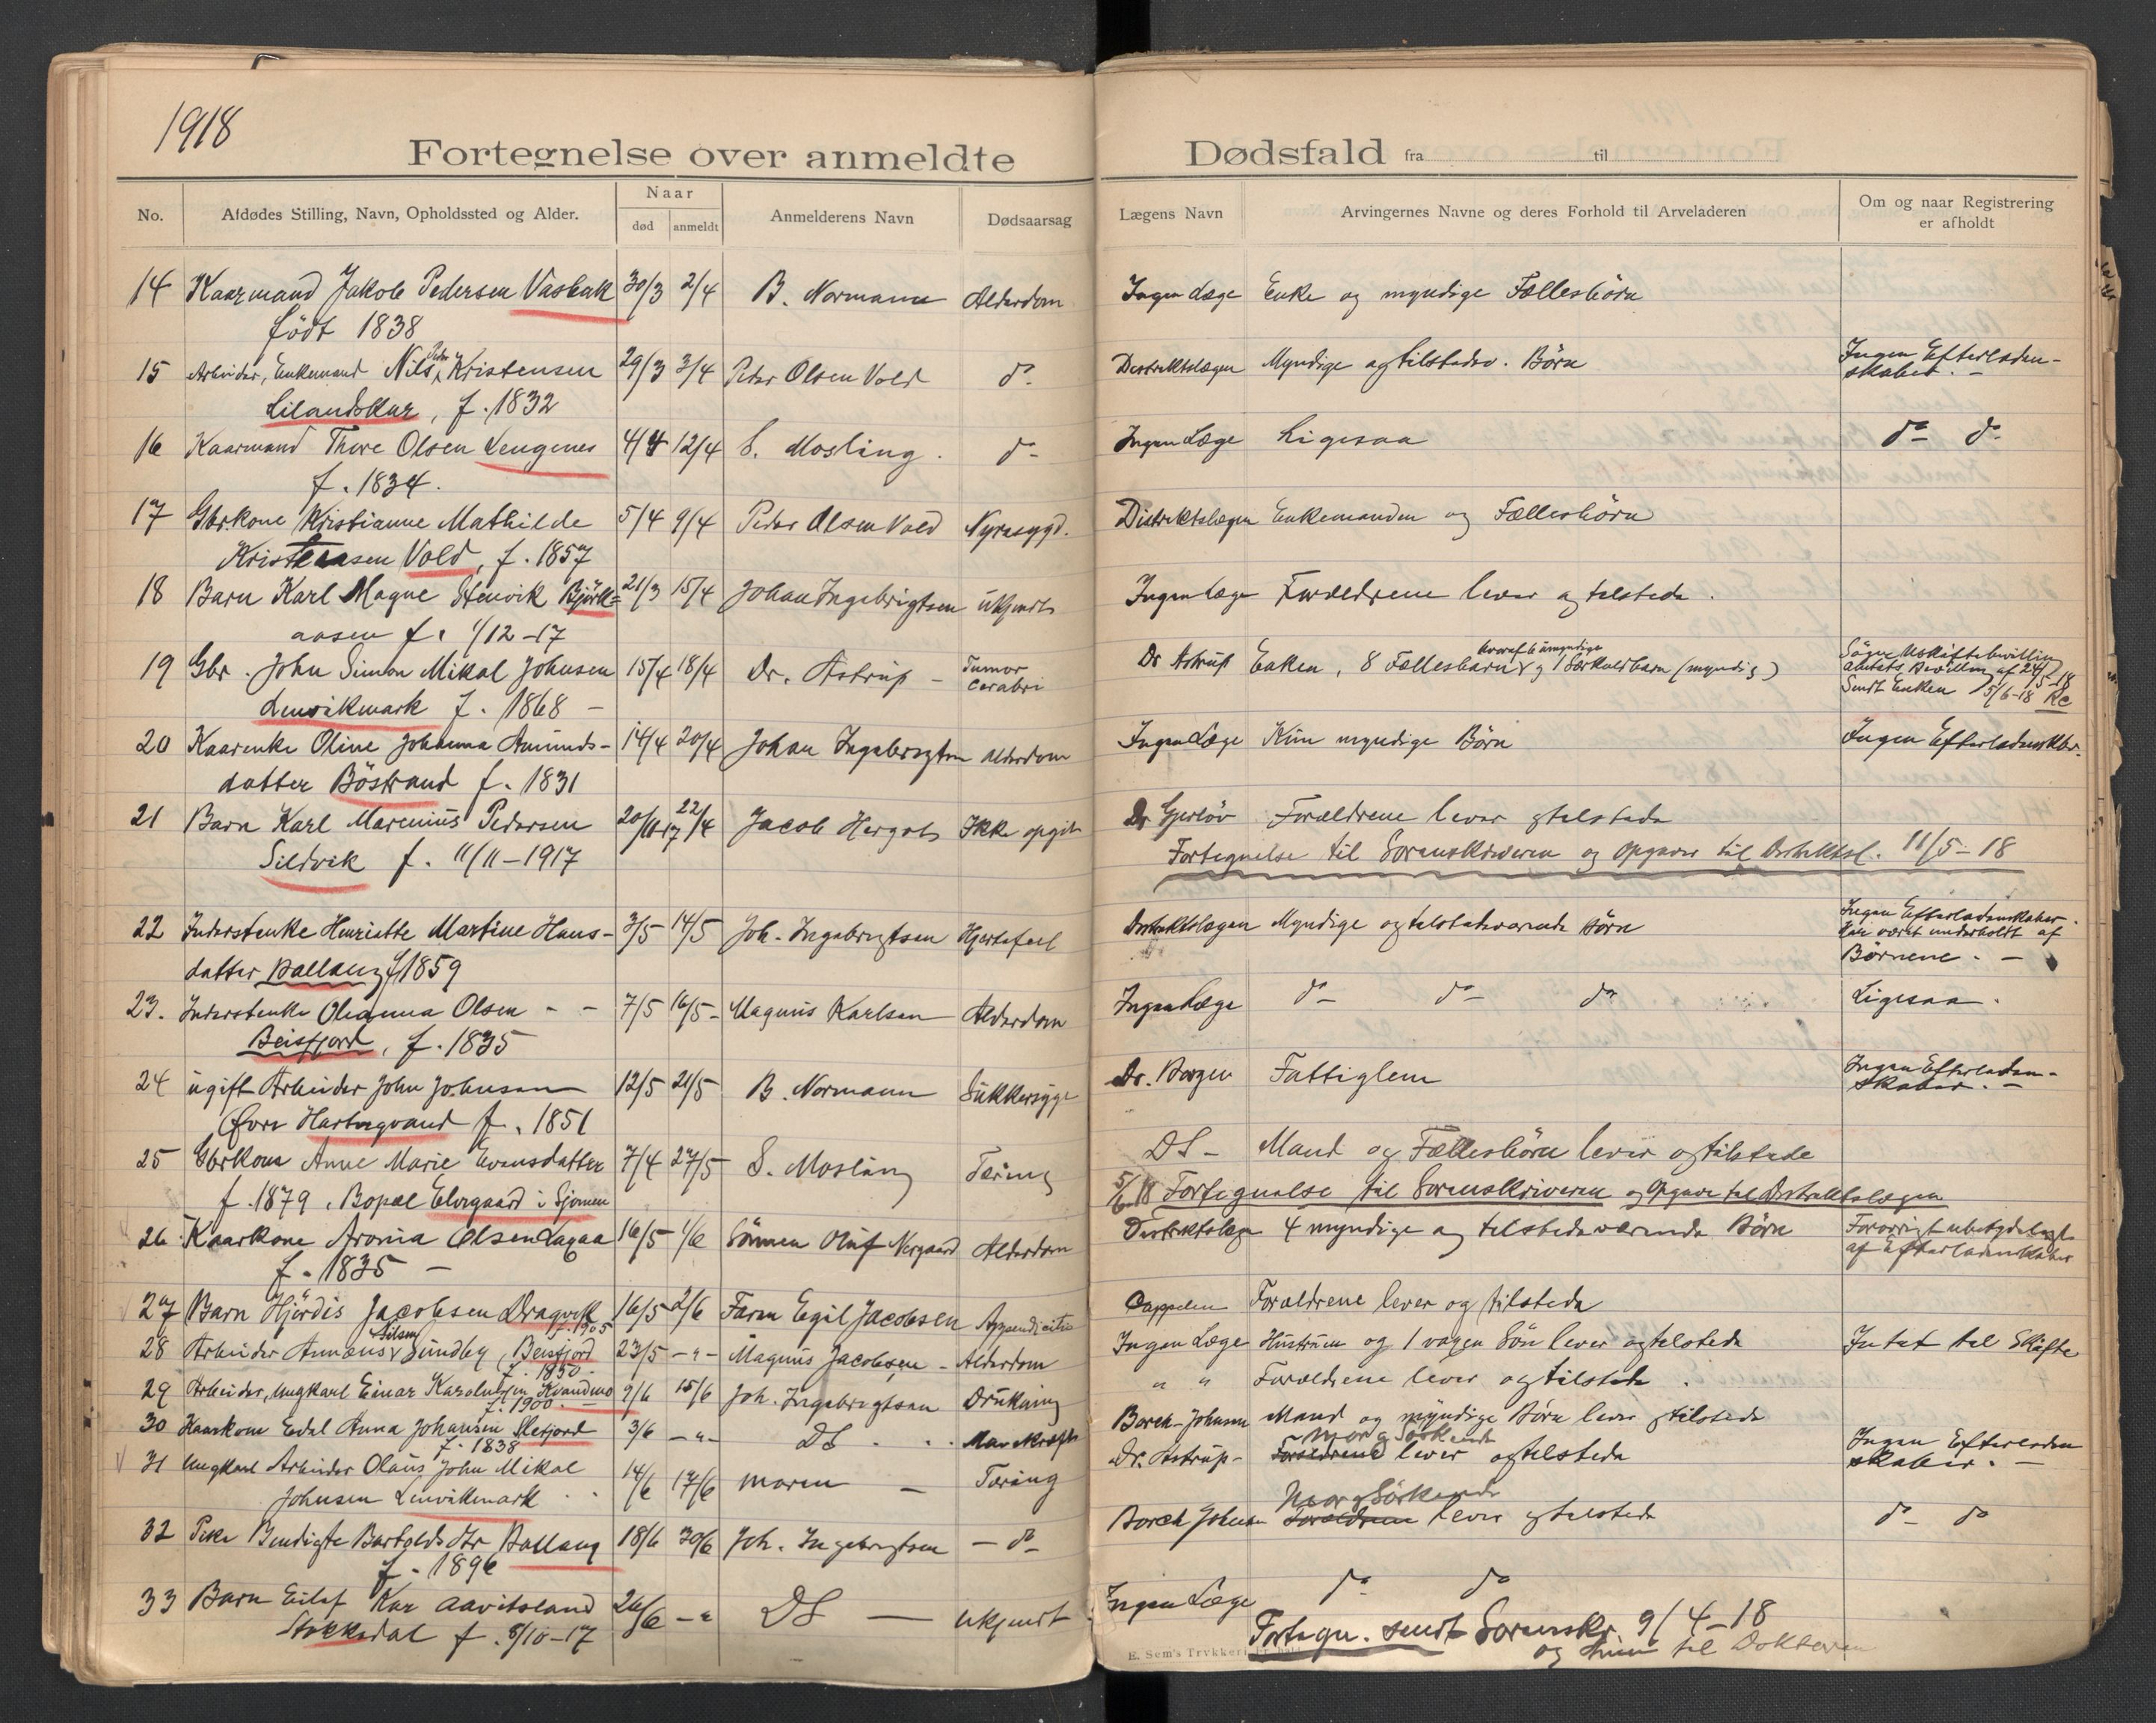 1918
Fortegnelse over anmeldte
No.
Afdødes Stilling, Navn, Opholdssted og Alder.
Naar
død
anmeldt
Anmelderens Navn
Dødsaarsag
14 Kaarmand Jakob Pedersen Vasbak 30/3 2/4 B. Normann Alderdom
födt 1838
15 Arbeider, Enkemand Nils Peder Kristensen 29/3 3/4 Peder Olsen Vold do
Lilandskar, f. 1832
16 Kaarmand Thore Olsen Lengenes 4/4 12/4 S. Mosling. do
f. 1834.
17 Gbrkone Kristianne Mathilde 5/4 9/4 Peder Olsen Vold Nyresygd.
Kristensen Vold, f. 1857
18 Barn Karl Magne Stenvik Björk= 21/3 15/4 Johan Ingebrigtsen ukjendt
aasen f. 1/12-17
19 Gbr. John Simon Mikal Johnsen 15/4 18/4 Dr. Astrup - Tumor
cerabri
Lenvikmark f. 1868 -
20 Kaarenke Oline Johanna Amunds- 14/4 20/4 Johan Ingebrigtsen Alderdom
datter Böstrand f. 1831
21 Barn Karl Marenius Pedersen 20/11 17 22/4 Jacob Hergot Ikke opgit
Sildvik f. 11/11-1917
22 Inderstenke Henriette Martine Hans- 3/5 14/5 Joh. Ingebrigtsen Hjertefeil
datter Ballang f 1859
23. Inderstenke Oleanna Olsen - - 7/5 16/5 - Magnus Karlsen Alderdom
Beisfjord, f. 1835
24 ugift Arbeider John Johnsen 12/5 21/5 B. Normann Sukkersyge
Øvre Hartvigvand f. 1851
25 Gbrkone Anne Marie Evensdatter 7/4 27/5 S. Mosling Tæring
f. 1879. Bopæl Elvegaard i Sjomen
26 Kaarkone Aronia Olsen 16/5 1/6 Sönnen Oluf Norgaard Alderdom
f. 1835 -
27 Barn Hjördis Jacobsen Dragvik 16/5 2/6 Faren Egil Jacobsen Appendicitis
f. 1905
28 Arbeider Amæus Nilsen Sundby, Beisfjord 23/5 -"- Magnus Jacobsen - Alderdom
f. 1850. -
29 Arbeider, Ungkarl Einar Karolussen Kvandmo 9/6 15/6 Joh. Ingebrigtsen Drukning
f. 1900. -
30 Kaarkone Edel Anna Johansen 3/6 -"- DS . . Mavekræft
f. 1838
31 Ungkarl Arbeider Olaus John Mikal 14/6 17/6 moren - Tæring
Johnsen Lenvikmark
32 Pike Bendigte Bartolds dtr Ballang 18/6 30/6 Joh. Ingebrigtsen - do
f. 1896
33 Barn Eilif Kar Aavitsland 26/6 -" DS - ukjendt
Stokkedal f. 8/10-17
Dødsfald fra til
Lægens Navn
Arvingernes Navne og deres Forhold til Arveladeren
Om og naar Registrering
er afholdt
Ingen Læge Enke og myndige Fællesbörn
Destriktslægen Myndige og tilstedev. Börn Ingen Efterladen-
skaber. -
Ingen Læge Ligesaa do do
Distriktslægen Enkemanden og Fællesbörn
Ingen Læge Forældrene lever og tilstede.
Dr Astrup Enken, 8 Fællesbarn hvoraf 6 umyndige og 1 Særkulsbarn (myndig)
af 24/5-18
Sendt Enken 5/6-18
Ingen Læge Kun myndige Börn Ingen Efterladenskber.
Dr Gjerløv Forældrene lever og tilstede
Fortegnelse til Sorenskriveren og Opgaver til Distriktsl. 11/5-18
Distriktslægen Myndige og tilstedeværende Börn Ingen Efterladenskaber.
har været underholdt af
Börnene. -
Ingen Læge do do do Ligesaa.
Dr. Borgen Fattiglem Ingen Efterladen-
skaber. -
DS - Mand og Fællesbörn lever og tilstede
5/6 18 Fortegnelse til Sorenskriveren og Opgave til Distriktslægen
Destriktslægen 4 myndige og tilstedeværende Börn Forövrigt ubetydeligt
af Efterladenskaber
Cappelen Forældrene lever og tilstede
Ingen Læge Hustruen og 1 voxen Sön lever og tilstede Intet til Skifte
" " Forældrene lever og tilstede.
Borch-Johnsen Mand og myndige Börn lever og tilstede
Mor og Söskende
Dr. Astrup - Forældrene lever og tilstede Ingen Efterladen
skaber. -
Mor og Söskende
Borch Johnsen Forældrene lever og tilstede do do
Ingen Læge do do
Fortegn. sendt Sorenskr. 9/4-18
og til Doktoren
E. Sem's Trykkeri